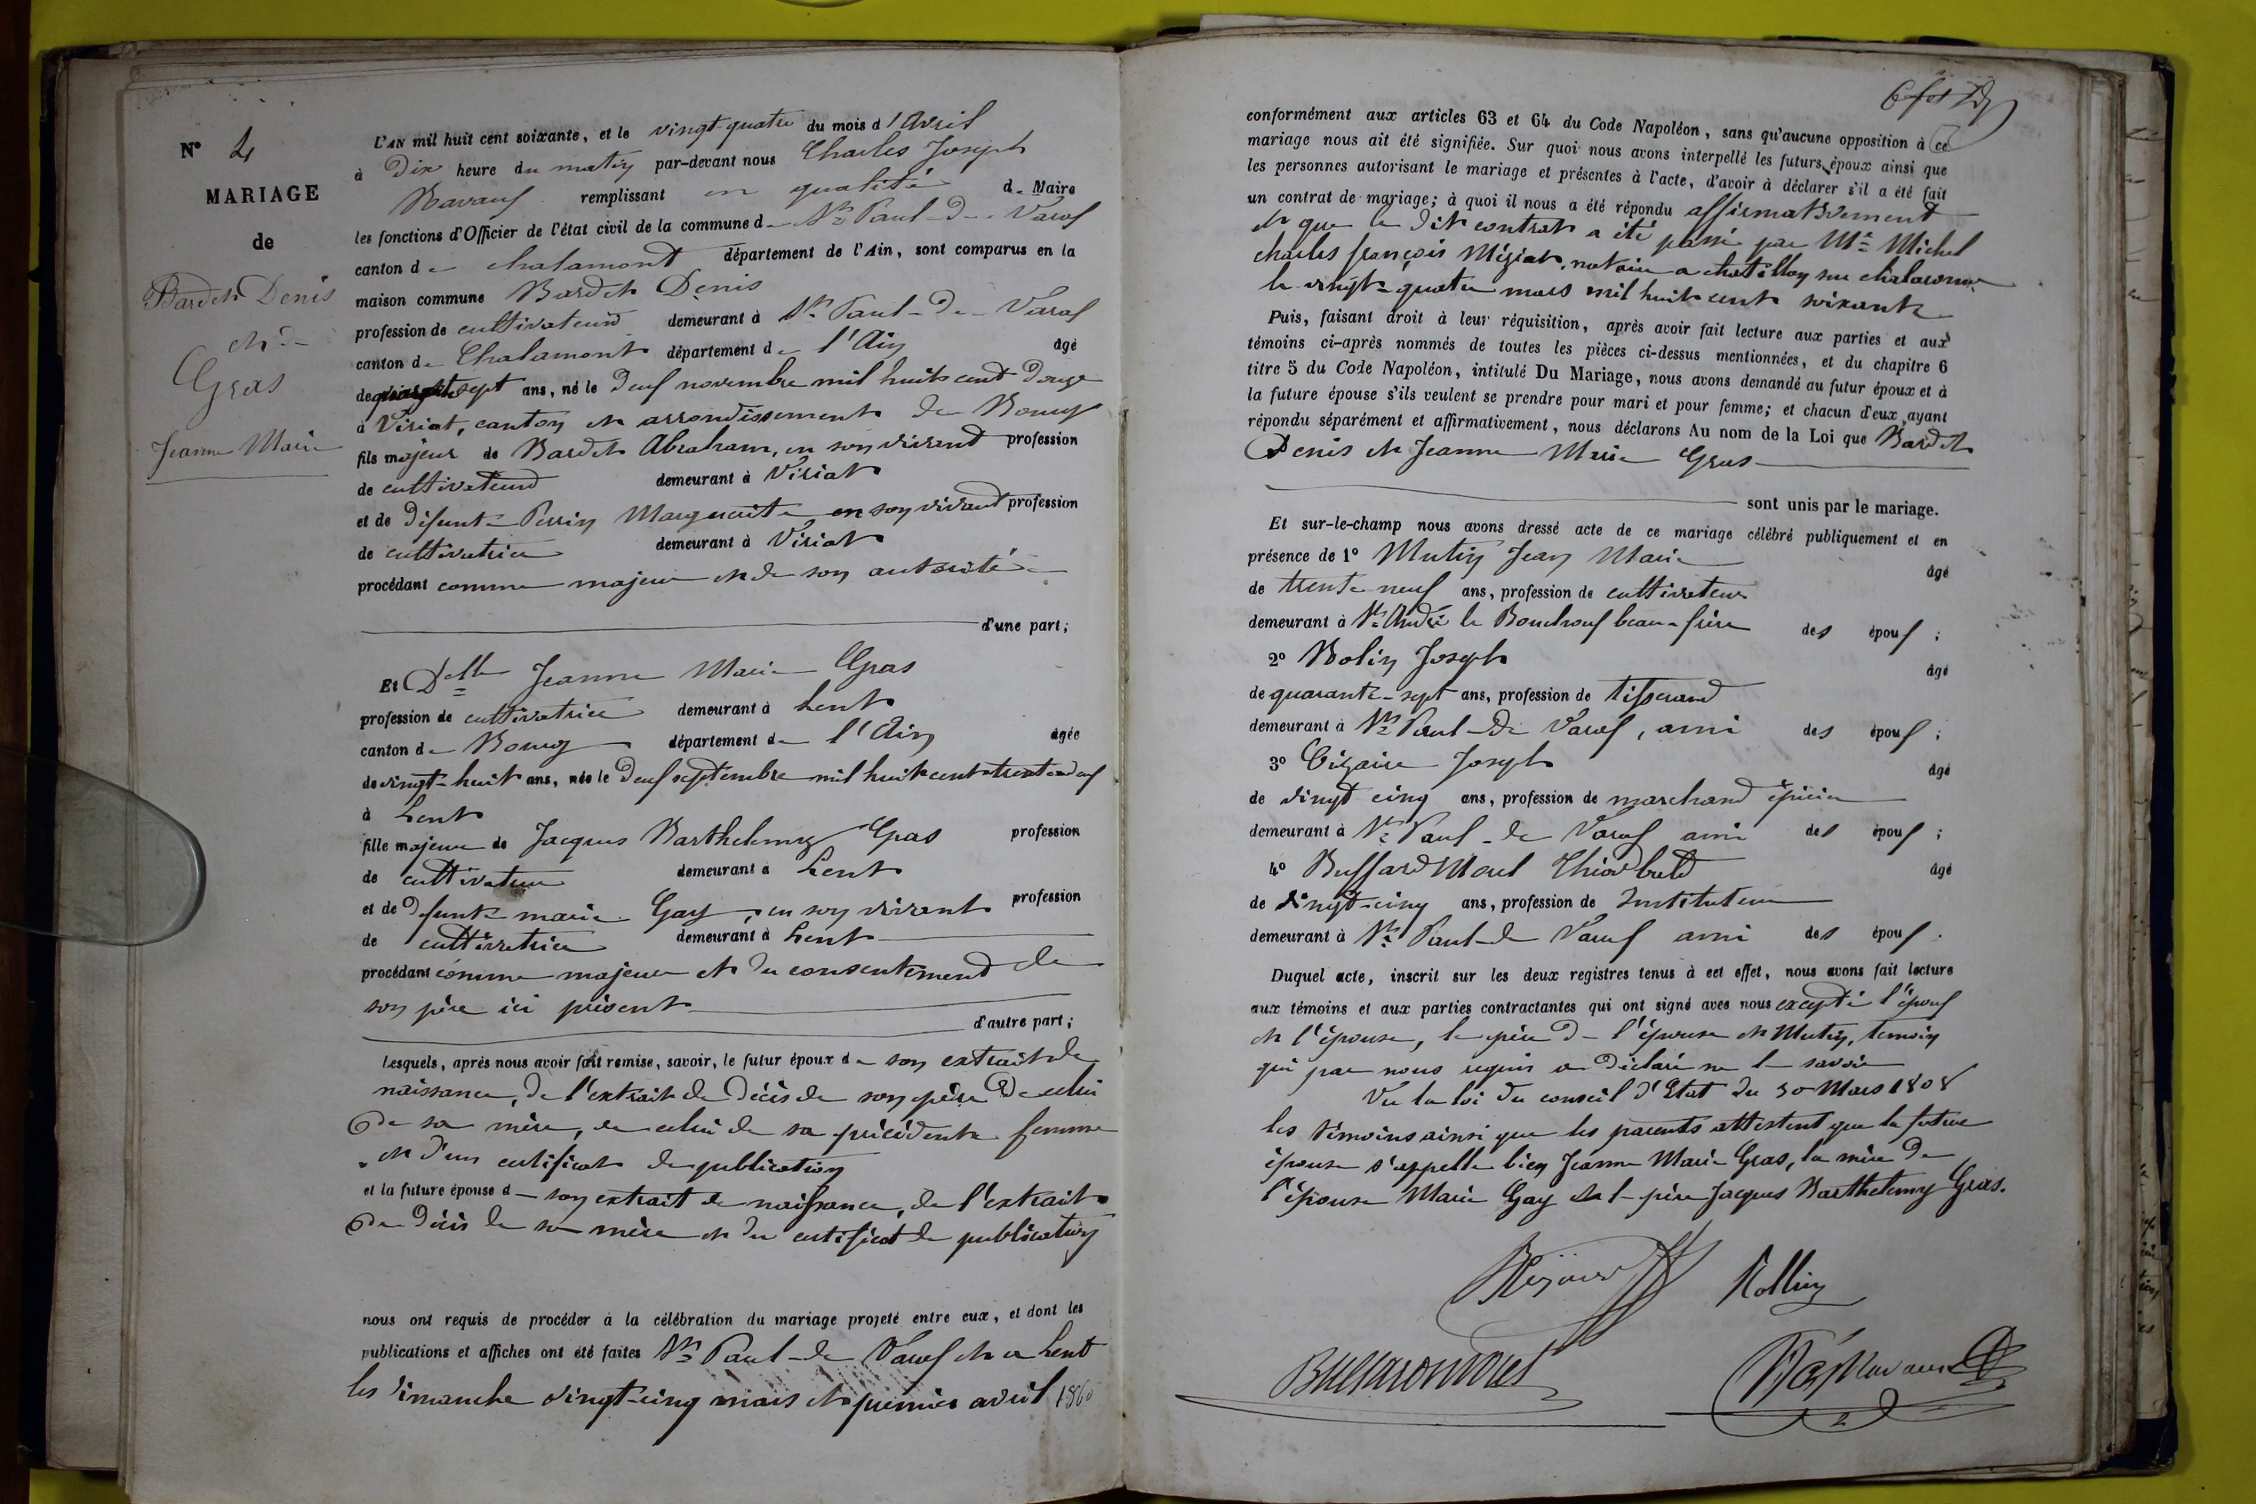 N° 4
MARIAGE
de
Bardet Denis
et de
Gras
Jeanne Marie
L'AN mil huit cent soixante, et le vingt quatre du mois d'Avril
à Dix heure du matin par-devant nous Charles Joseph
remplissant en qualité de Maire
les fonctions d'Officier de l'état civil de la commune de St Paul-de-Varax
canton de chalamont département de l'Ain, sont comparus en la
maison commune Bardet Denis
profession de cultivateur demeurant à St Paul-de-Varax
canton de Chalamont département de l'Ain âgé
de quarante sept ans, né le Deux novembre mil huit cent Douze
à Viriat, canton et arrondissement de Bourg
fils majeur de Bardet Abraham, en son vivant profession
de cultivateur demeurant à Viriat
et de Défunte Perrin Marguerite en son vivant profession
de cultivatrice demeurant à Viriat
procédant comme majeur et de son autorité
d'une part;
Et Delle Jeanne Marie Gras
profession de cultivatrice demeurant à Lent
canton de Bourg département de l'Ain âgée
de vingt-huit ans, née le Deux septembre mil huit cent trente un
à Lent
fille majeure de Jacques Barthelemy Gras profession
de cultivateur demeurant à Lent
et de Défunte marie Gay, en son vivant profession
de cultivatrice demeurant à Lent
procédant comme majeure et du consentement de
son père ici présent
d'autre part;
Lesquels, après nous avoir fait remise, savoir, le futur époux de son extrait de
naissance, de l'extrait de Décès de son père De celui
De sa mère, de celui de sa précédente femme
et d'un certificat de publication
et la future épouse de son extrait de naissance, de l'extrait
De Décès de sa mère et du certificat de publication
nous ont requis de procéder à la célébration du mariage projeté entre eux, et dont les
publications et affiches ont été faites St Paul-de Varax et a Lent
les Dimanche vingt-cinq mars et premier avril 1860
conformément aux articles 63 et 64 du Code Napoléon, sans qu'aucune opposition à ce
mariage nous ait été signifiée. Sur quoi nous avons interpellé les futurs époux ainsi que
les personnes autorisant le mariage et présentes à l'acte, d'avoir à déclarer s'il a été fait
un contrat de mariage; à quoi il nous a été répondu affirmativement
et que le Dit contrat a été passé par Me Michel
charles françois Méziat, notaire a chatillon sur chalaronne
le vingt-quatre mars mil huit cent soixante
Puis, faisant droit à leur réquisition, après avoir fait lecture aux parties et aux
témoins ci-après nommés de toutes les pièces ci-dessus mentionnées, et du chapitre 6
titre 5 du Code Napoléon, intitulé Du Mariage, nous avons demandé au futur époux et à
la future épouse s'ils veulent se prendre pour mari et pour femme; et chacun d'eux ayant
répondu séparément et affirmativement, nous déclarons Au nom de la Loi que Bardet
Denis et Jeanne Marie Gras
sont unis par le mariage.
Et sur-le-champ nous avons dressé acte de ce mariage célébré publiquement et en
présence de 1° Mutin Jean Marie âgé
de trente-neuf ans, profession de cultivateur
demeurant à St André le Bouchoux beau-frère des époux;
2° Rolin Joseph âgé
de quarante-sept ans, profession de tisserand
demeurant à St Paul-de Varax, ami des époux;
3° Joseph âgé
de vingt cinq ans, profession de marchand épicier
demeurant à St Paul-de Varax ami des époux;
4° Buffard Morel âgé
de vingt-cinq ans, profession de Instituteur
demeurant à St Paul-de Varax ami des époux.
Duquel acte, inscrit sur les deux registres tenus à cet effet, nous avons fait lecture
aux témoins et aux parties contractantes qui ont signé avec nous excepté l'époux
et l'épouse, le père de l'épouse et Mutin, temoin
qui par nous requis a Déclaré ne le savoir
Vu la loi du conseil d'Etat du 30 Mars 1808
les témoins ainsi que les parents attestent que la future
épouse s'appelle bien Jeanne Marie Gras, la mère de
l'épouse Marie Gay et le père Jacques Barthelemy Gras.
Rollin